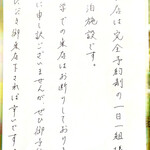 店は完全予約制の一日一組
泊施設です。
学での来店はお断りしており
に申し訳ございませんがぜひ御予
御来店下されば幸いです